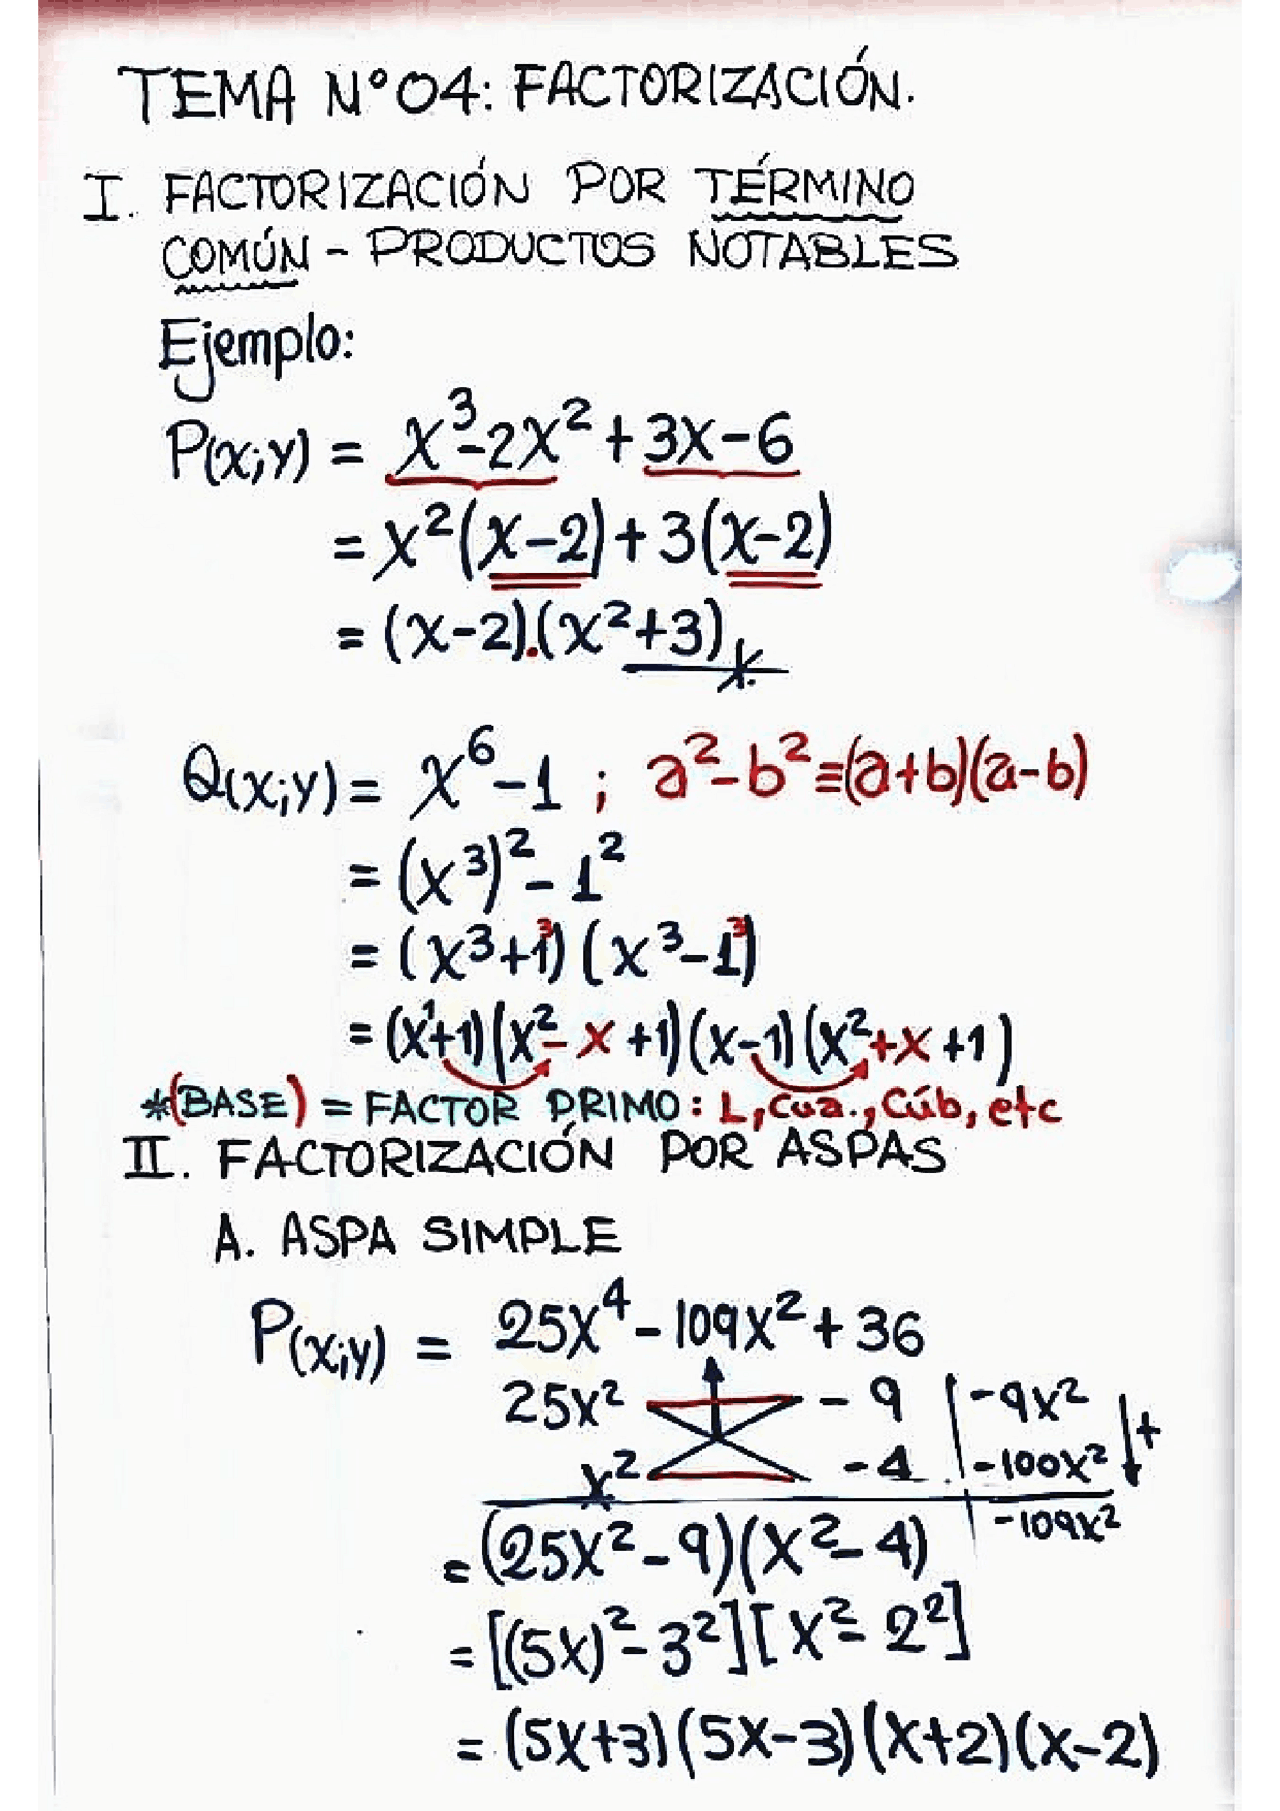 TEMA N°04: FACTORIZACIÓN.
I. FACTORIZACIÓN POR TÉRMINO
COMÚN - PRODUCTOS NOTABLES
Ejemplo:
P(x;y) = x³-2x²+3x-6
= x²(x-2)+3(x-2)
= (x-2).(x²+3)
Q(x;y) = x⁶-1 ; a²-b²≡(a+b)(a-b)
= (x³)²-1²
= (x³+1³)(x³-1³)
= (x¹+1)(x²-x+1)(x-1)(x²+x+1)
*(BASE) = FACTOR PRIMO: L, Cua., Cúb, etc
II. FACTORIZACIÓN POR ASPAS
A. ASPA SIMPLE
P(x;y) = 25x⁴-109x²+36
25x² -9 | -9x²
x² -4 | -100x² +
-109x²
= (25x²-9)(x²-4)
= [(5x)²-3²][x²-2²]
= (5x+3)(5x-3)(x+2)(x-2)